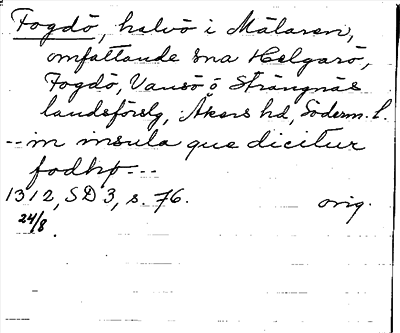 Fogdö, halvö i Mälaren,
omfattande sna Helgarö,
Fogdö, Vansö o Strängnäs
landsförslg, Åkers hd, Söderm. l.
--in insula que dicitur
fodhø---
1312, SD 3, s. 76. orig.
24/8